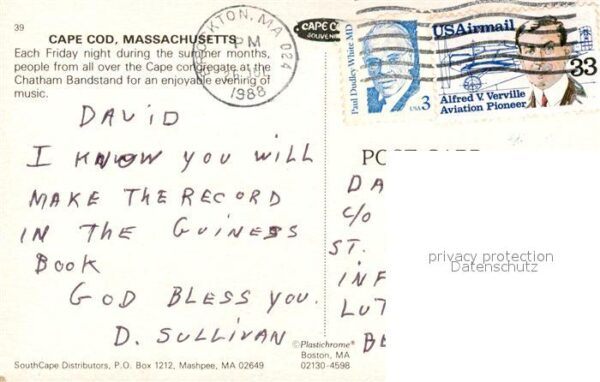 39
CAPE COD, MASSACHUSETTS
Each Friday night during the summer months,
people from all over the Cape congregate at the
Chatham Bandstand for an enjoyable evening of
music.
BROCKTON, MA 024
PM
1988
CAPE CO
SOUVENIR
Paul Dudley White MD
USA 3
USAirmail
33
Alfred V. Verville
Aviation Pioneer
DAVID
I KNOW YOU WILL
MAKE THE RECORD
IN THE GUINESS
BOOK
GOD BLESS YOU.
D. SULLIVAN
DA
C/O
ST.
INF
LUT
BE
privacy protection
Datenschutz
©Plastichrome®
Boston, MA
02130-4598
SouthCape Distributors, P.O. Box 1212, Mashpee, MA 02649